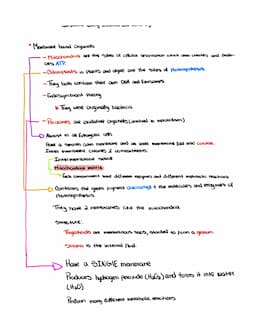 • Membrane bound Organelles
- Mitochondria are the sites of cellular respiration
ATP.
- Chloroplasts in plants and algae are the sites of photosynthesis
- They both contain their own DNA and ribosomes
- Endosymbiont theory
↳ They were originally bacteria
- Peroxisomes are oxidative organelles (involved in metabolism)
Almost in all Eukaryotic cells
Have a smooth outer membrane and an inner membrane fold into cristae.
Inner membrane creates 2 compartments.
Intermembrane space
Mitochondria matrix
Each compartment have different enzymes and different metabolic reactions
Contains the green pigment chlorophyll & the molecules and enzymes of
Photosynthesis.
They have 2 membranes like the mitochondria
Structure:
Thylakoids are membranous sacs, stacked to form a granum
Stroma is the internal fluid
Have a SINGLE membrane
Produces hydrogen peroxide (H₂O₂) and turns it into water
(H₂O)
Perform many different metabolic reactions